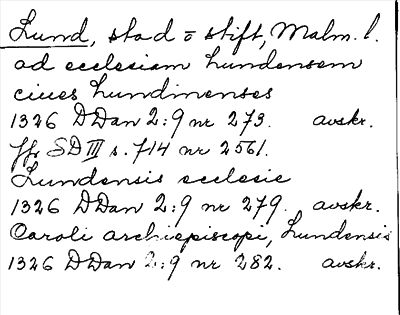 Lund, stad o stift, Malm. l.
ad ecclesiam Lundensem
ciues Lundinenses
1326 DDan 2:9 nr 273. avskr.
Jfr SD III s. 714 nr 2561.
Lundensis ecclesie
1326 DDan 2:9 nr 279. avskr.
Caroli archiepiscopi, Lundensis
1326 DDan 2:9 nr 282. avskr.